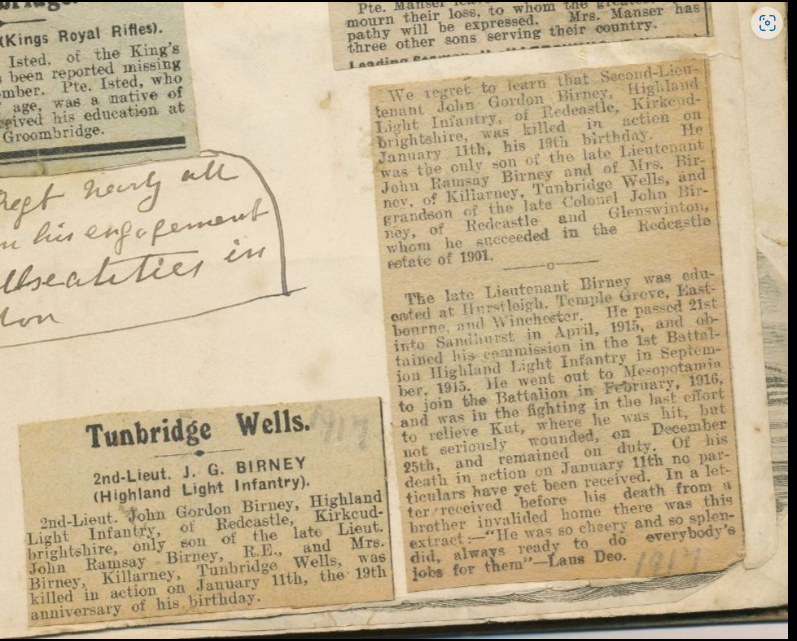 (Kings Royal Rifles).
Isted, of the King's
been reported missing
mber. Pte. Isted, who
age, was a native of
eived his education at
Groombridge.
Regt nearly all
n his engagement
in
Pte. Manser
mourn their loss, to whom the
pathy will be expressed. Mrs. Manser has
three other sons serving their country.
We regret to learn that Second-Lieu-
tenant John Gordon Birney, Highland
Light Infantry, of Redcastle, Kirkcud-
brightshire, was killed in action on
January 11th, his 19th birthday. He
was the only son of the late Lieutenant
John Ramsay Birney and of Mrs. Bir-
ney, of Killarney, Tunbridge Wells, and
grandson of the late Colonel John Bir-
ney, of Redcastle and Glenswinton,
whom he succeeded in the Redcastle
estate of 1901.
The late Lieutenant Birney was edu-
cated at Hurstleigh, Temple Grove, East-
bourne, and Winchester. He passed 21st
into Sandhurst in April, 1915, and ob-
tained his commission in the 1st Battal-
ion Highland Light Infantry in Septem-
ber, 1915. He went out to Mesopotamia
to join the Battalion in February, 1916,
and was in the fighting in the last effort
to relieve Kut, where he was hit, but
not seriously wounded, on December
25th, and remained on duty. Of his
death in action on January 11th no par-
ticulars have yet been received. In a let-
ter received before his death from a
brother invalided home there was this
extract:—"He was so cheery and so splen-
did, always ready to do everybody's
jobs for them"—Laus Deo. 1917
Tunbridge Wells. 1917
2nd-Lieut. J. G. BIRNEY
(Highland Light Infantry).
2nd-Lieut. John Gordon Birney, Highland
Light Infantry, of Redcastle, Kirkcud-
brightshire, only son of the late Lieut.
John Ramsay Birney, R.E., and Mrs.
Birney, Killarney, Tunbridge Wells, was
killed in action on January 11th, the 19th
anniversary of his birthday.